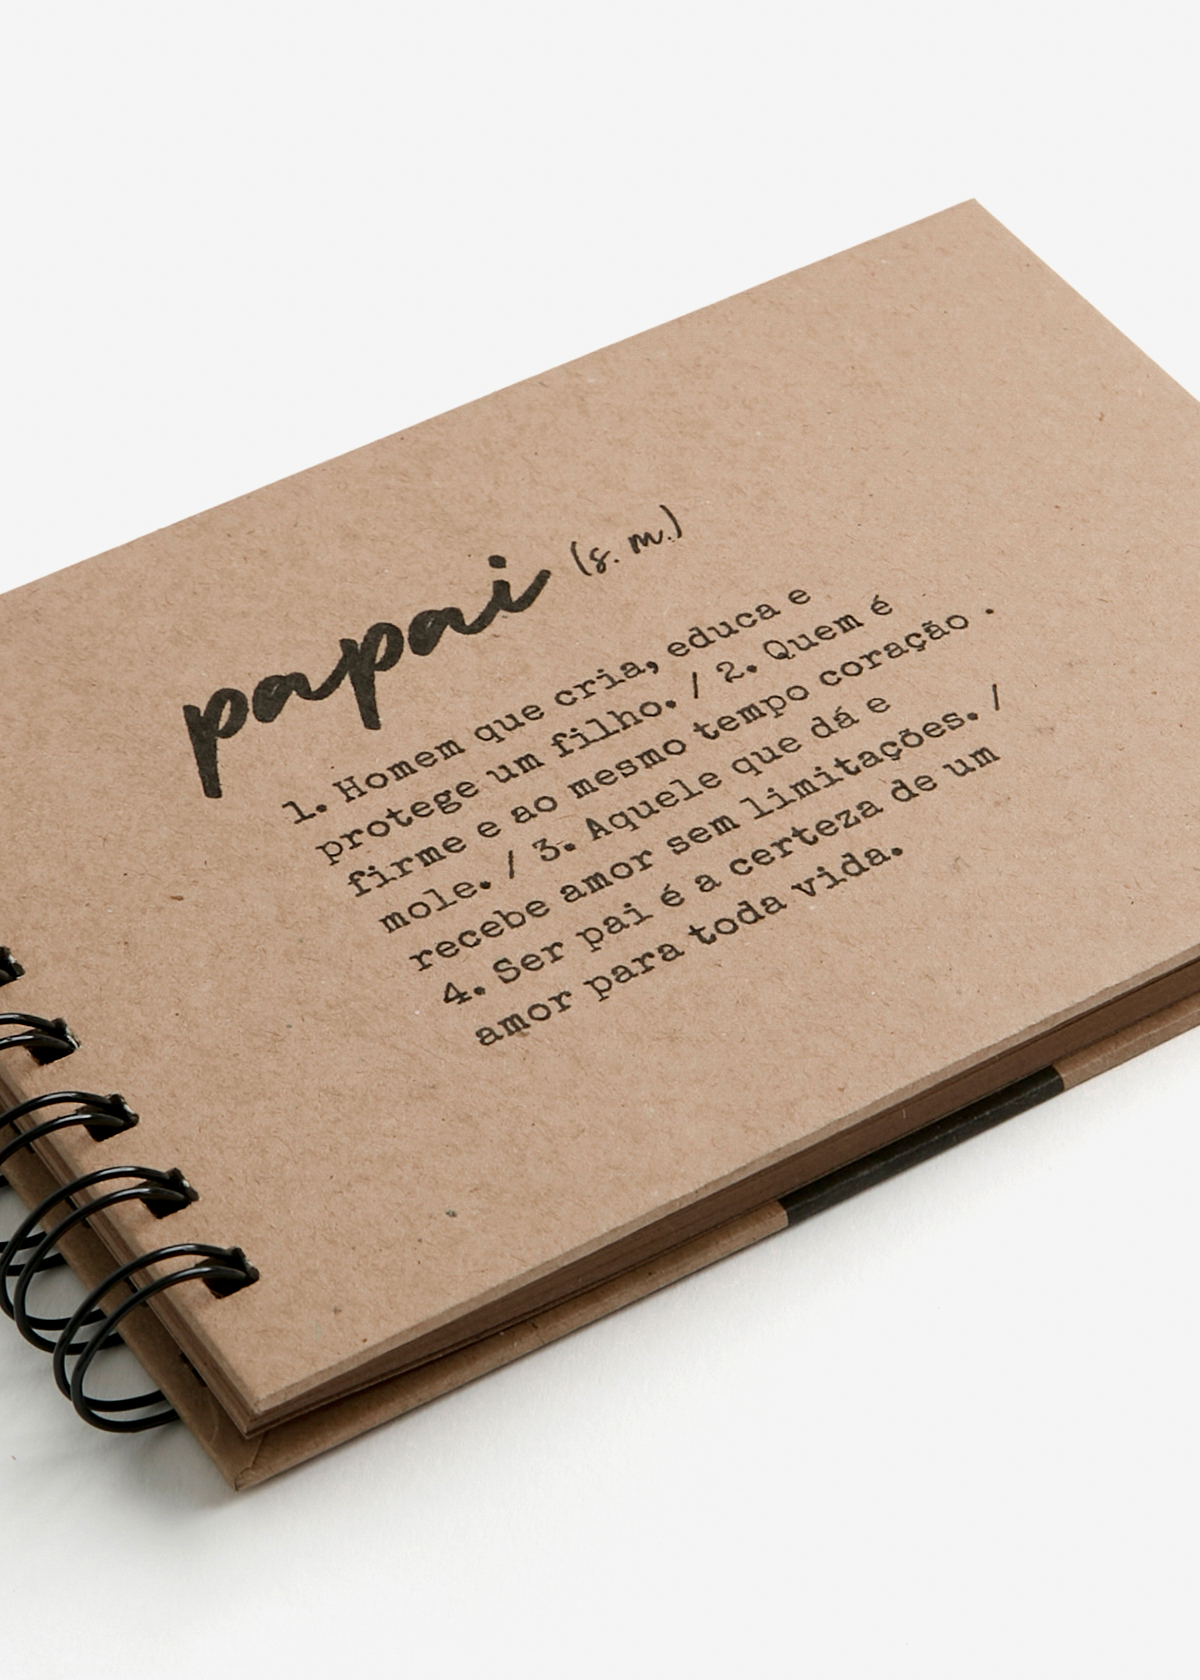 papai (s. m.)
1. Homem que cria, educa e
protege um filho. / 2. Quem é
firme e ao mesmo tempo coração .
mole. / 3. Aquele que dá e
recebe amor sem limitações. /
4. Ser pai é a certeza de um
amor para toda vida.